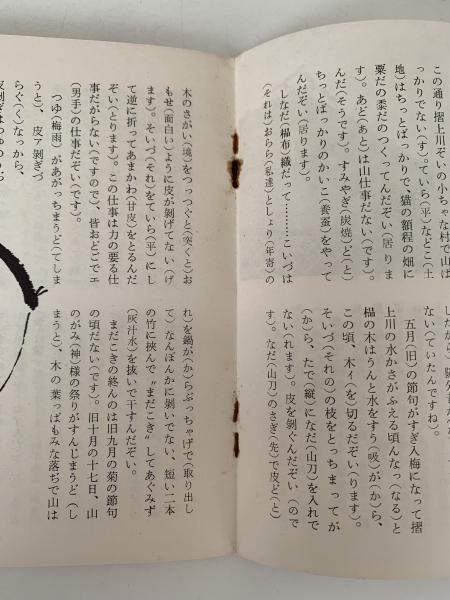 この通り摺上川ぞいの小ちゃな村で山ば
っかりでない(す)。ていら(平)などこ(土
地)はちっとばっかりで、猫の額程の畑に
粟だの黍だのつくってんだぞい(居りま
す)。あど(あと)は山仕事だない(です)。
んだ(そうです)。すみやぎ(炭焼)ど(と)
ちっとばっかりのかいこ(養蚕)をやって
んだぞい(居ります)。
しなだ(榀布)織だって………こいづは
(それは)おらら(私達)としょり(年寄)の
ない(ていたんですね)。
五月(旧)の節句がすぎ入梅になって摺
上川の水かさがふえる頃んなっ(なる)と
榀の木はうんと水をすう(吸)が(か)ら、
この頃、木ィ(を)切るだぞい(ます)。
そいづ(それの)の枝をとっちまってが
(か)ら、たで(縦)になだ(山刀)を入れで
ない(れます)。皮を剝ぐんだぞい(ので
す)。なだ(山刀)のさぎ(先)で皮ど(と)
木のさがい(境)をつっつぐと(突くと)お
もせ(面白い)ように皮が剝げてない(げ
ます)。そいづ(それ)をていら(平)にし
て逆に折ってあまかわ(甘皮)をとるんだ
ぞい(とります)。この仕事は力の要る仕
事だがらない(ですので)、皆おどごでェ
(男手)の仕事だぞい(です)。
つゆ(梅雨)があがっちまうど(てしま
うと)、皮ア剝ぎづ
らぐ(く)なっから、
れ)を鍋が(か)らぶっちゃげで(取り出し
て)なんぼんかに剝いでない、短い二本
の竹に挾んで〝まだこき〟してあぐみず
(灰汁水)を抜いで干すんだぞい。
まだこきの終んのは旧九月の菊の節句
の頃だない(です)。旧十月の十七日、山
のがみ(神)様の祭りがすんじまうど(し
まうと)、木の葉っぱもみな落ぢで山は